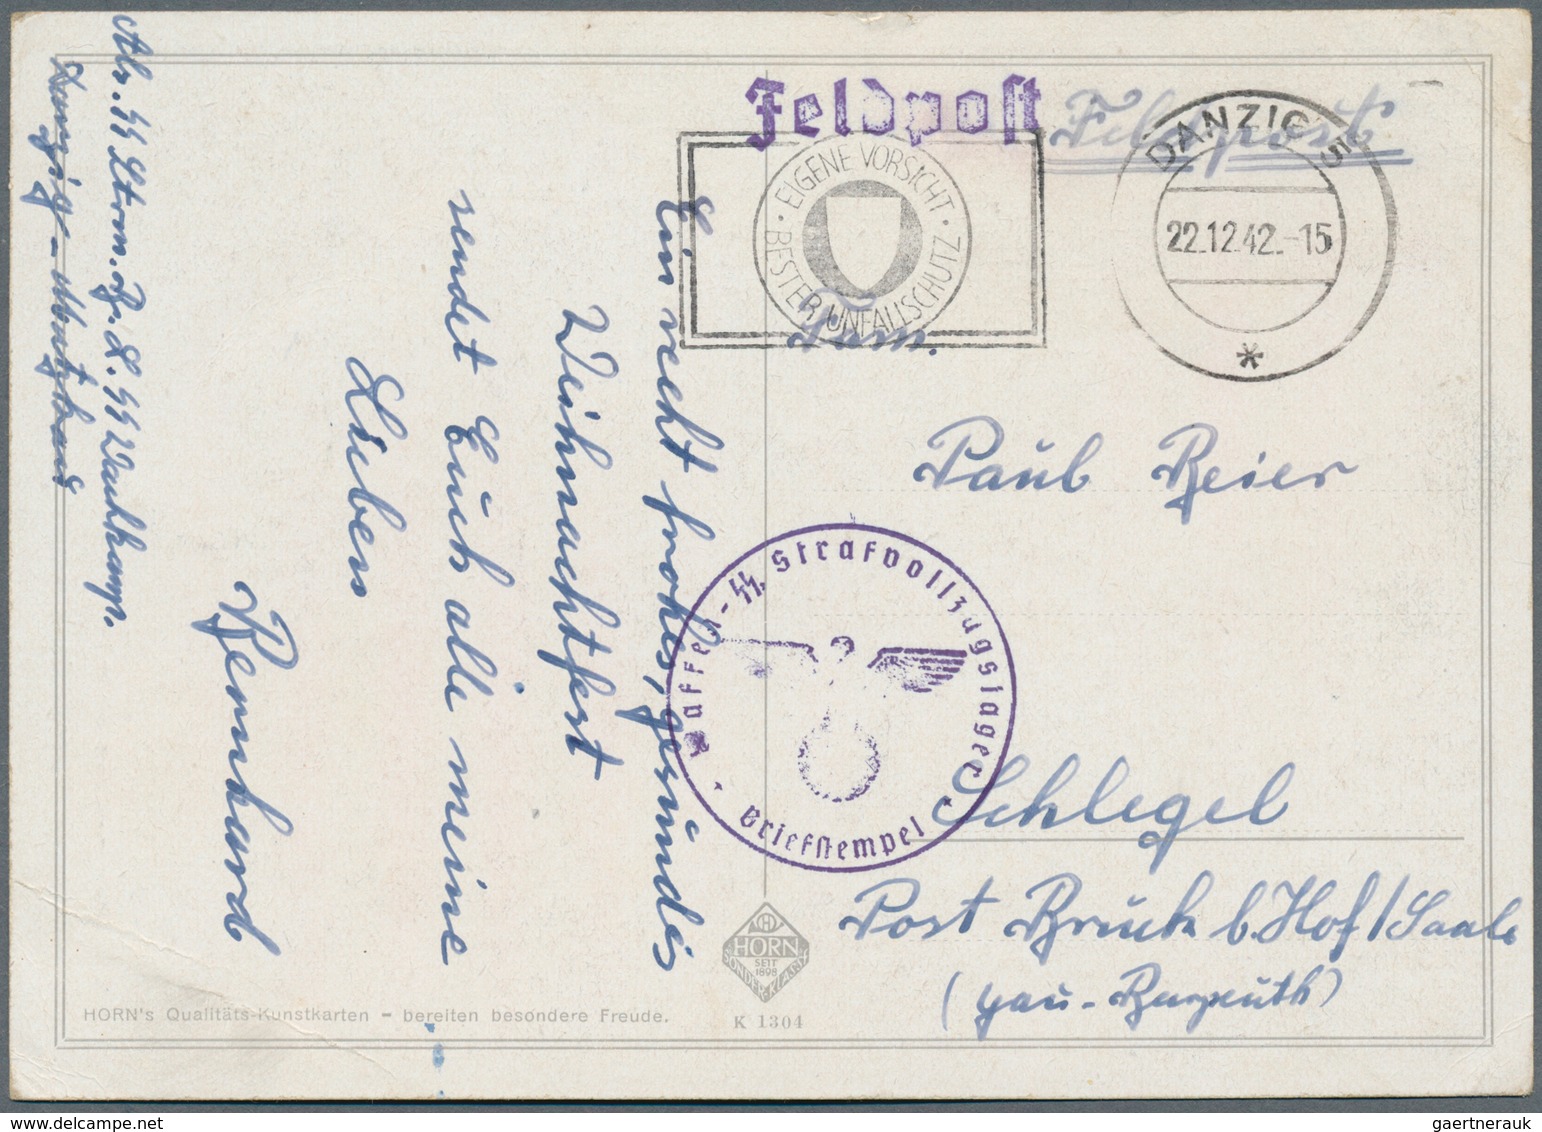 Feldpost
Feldpost
EIGENE VORSICHT
BESTER UNFALLSCHUTZ
DANZIG 5
22.12.42.-15
Fam.
Paul Beier
Schlegel
Post Brück b. Hof/Saale
(Gau-Bayreuth)
Waffen-SS, Strafvollzugslager
Briefstempel
Ein recht frohes, gesundes
Weihnachtfest
sendet Euch alle meine
Lieben
Bernhard
Abs. SS Strm. Br. L. SS Wachkomp.
Danzig - Matzkau
HORN
SEIT
1898
SONDER-KLASSE
HORN's Qualitäts-Kunstkarten – bereiten besondere Freude.
K 1304
gaertnerauk @ www.delcampe.net